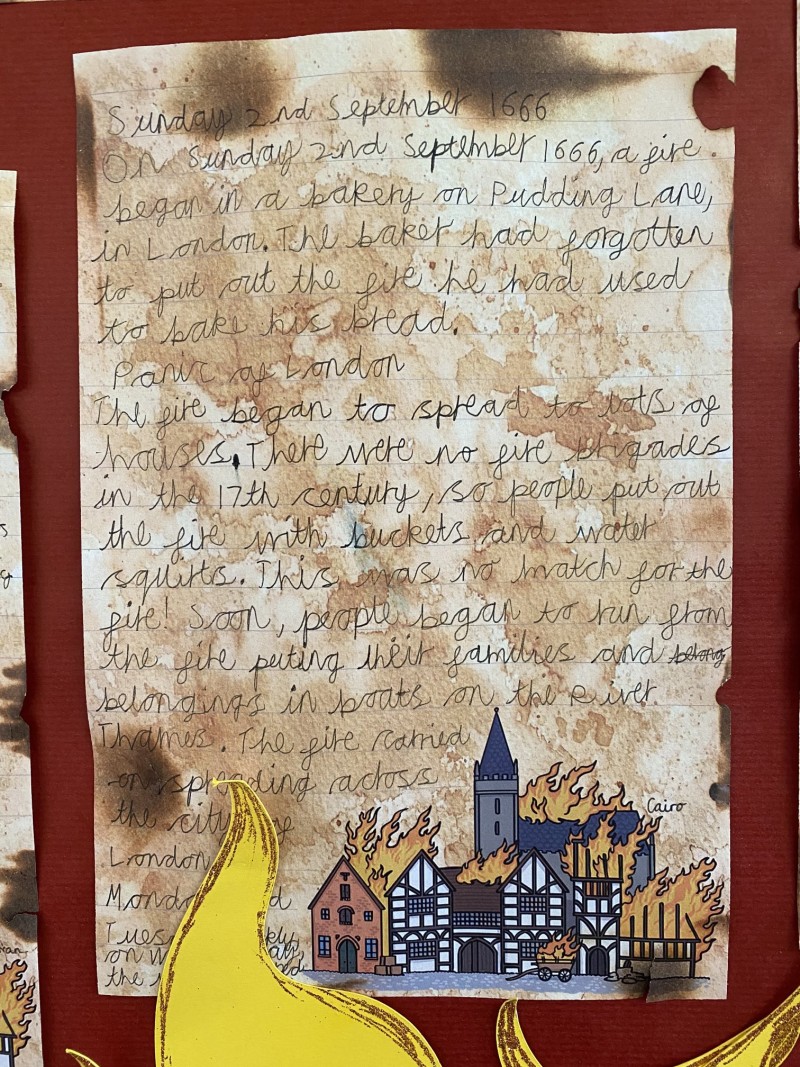 Sunday 2nd September 1666
On Sunday 2nd September 1666, a fire
began in a bakery on Pudding Lane,
in London. The baker had forgotten
to put out the fire he had used
to bake his bread.
Panic of London
The fire began to spread to lots of
houses. There were no fire brigades
in the 17th century, so people put out
the fire with buckets and water
squirts. This was no match for the
fire! Soon, people began to run from
the fire puting their families and belong
belongings in boats on the River
Thames. The fire carried
on spreading across
the city
London
Cairo
on
the